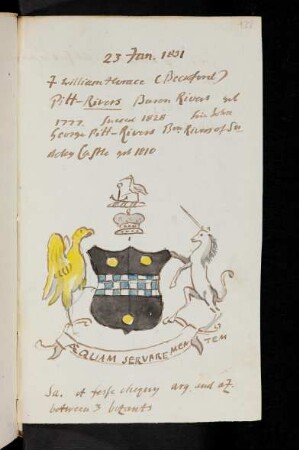 23 Jan. 1831
William Horace (Beckford)
Pitt-Rivers Baron Rivers
1777. Succeed 1828
George Pitt-Rivers Bon Rivers of Su
deley Castle 1810
ÆQUAM SERVARE MEN TEM
Sa. a fesse chequy arg. and az.
between 3 bezants